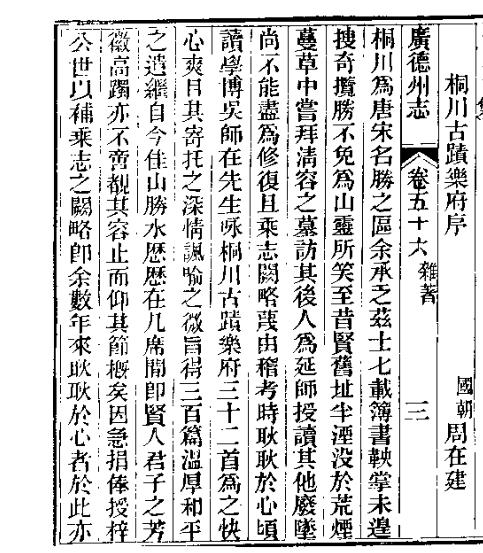 桐川古蹟樂府序　國朝周在建
廣德州志　卷五十六　雜著　三
桐川為唐宋名勝之區余承乏茲土七載簿書鞅掌未遑
搜奇攬勝不免為山靈所笑至昔賢舊址半湮没於荒煙
蔓草中嘗拜清容之墓訪其後人為延師授讀其他廢墜
尚不能盡為修復且乘志闕略蔑由稽考時耿耿於心頃
讀學博吳師在先生咏桐川古蹟樂府三十二首為之快
心爽目其寄托之深情諷喻之微旨得三百篇溫厚和平
之遺繼自今佳山勝水歷歷在几席間即賢人君子之芳
徽高躅亦不啻覩其容止而仰其節概矣因急捐俸授梓
公世以補乘志之闕略即余數年來耿耿於心者於此亦